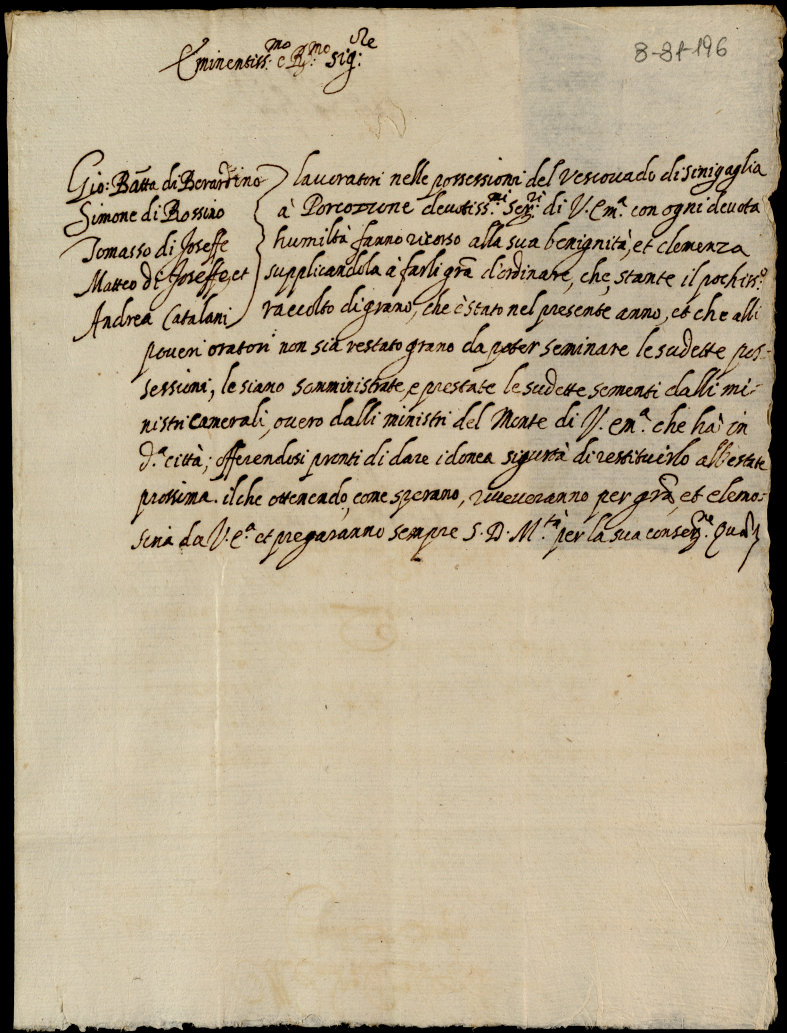 8-81-196
Eminentiss:mo e R:mo Sig:re
Gio: Batta di Berardino
Simone di Rossino
Tomasso di Joseffe
Matteo di Joseffe, et
Andrea Catalani
lavoratori nelle possessioni del Vescovado di Sinigaglia
à Porcozzone devotiss:mi Ser:ri di V. Em.a con ogni devota
humiltà fanno ricorso alla sua benignità, et clemenza
supplicandola à farli gra d'ordinare, che, stante il pochiss:o
raccolto di grano, che è stato nel presente anno, et che alli
poveri oratori non sia restato grano da poter seminare le sudette pos-
sessioni, le siano somministrate, e prestate le sudette sementi dalli mi-
nistri camerali, overo dalli ministri del Monte di V. em.a che hà in
d.a città; offerendosi pronti di dare idonea sigurtà di restituirlo all'estate
prossima. il che ottenendo, come sperano, riceveranno per gra, et elemo-
sina da V. E.a et pregaranno sempre S. D. M.tà per la sua conser.ne Quam